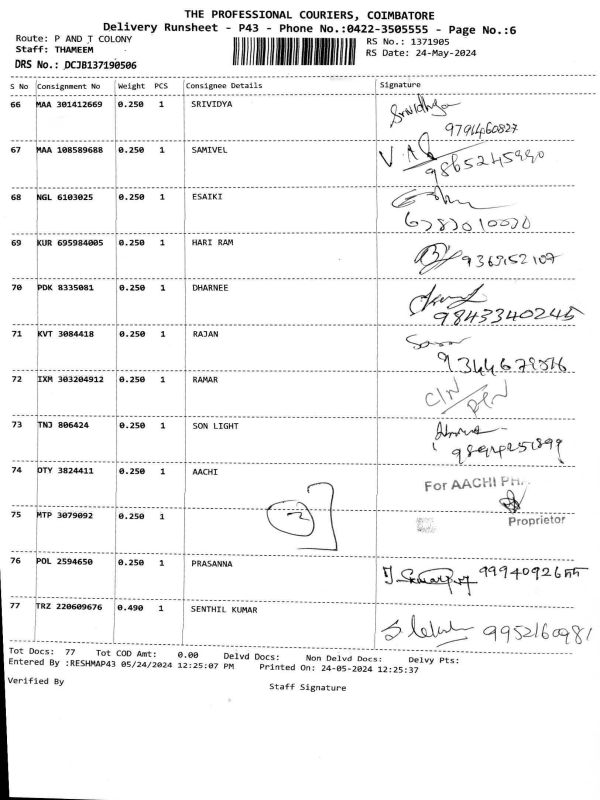 THE PROFESSIONAL COURIERS, COIMBATORE
Delivery Runsheet - P43 - Phone No.:0422-3505555 - Page No.:6
Route: P AND T COLONY
RS No.: 1371905
Staff: THAMEEM
RS Date: 24-May-2024
DRS No.: DCJB137190506
S No Consignment No Weight PCS Consignee Details Signature
66 MAA 301412669 0.250 1 SRIVIDYA Srividhya
9794460827
67 MAA 108589688 0.250 1 SAMIVEL
9865245990
68 NGL 6103025 0.250 1 ESAIKI
69 KUR 695984005 0.250 1 HARI RAM
70 PDK 8335081 0.250 1 DHARNEE
9843340245
71 KVT 3084418 0.250 1 RAJAN
72 IXM 303204912 0.250 1 RAMAR
73 TNJ 806424 0.250 1 SON LIGHT
74 OTY 3824411 0.250 1 AACHI For AACHI PH
75 MTP 3079092 0.250 1 2 Proprietor
76 POL 2594650 0.250 1 PRASANNA
77 TRZ 220609676 0.490 1 SENTHIL KUMAR
9952160981
Tot Docs: 77 Tot COD Amt: 0.00 Delvd Docs: Non Delvd Docs: Delvy Pts:
Entered By :RESHMAP43 05/24/2024 12:25:07 PM Printed On: 24-05-2024 12:25:37
Verified By
Staff Signature